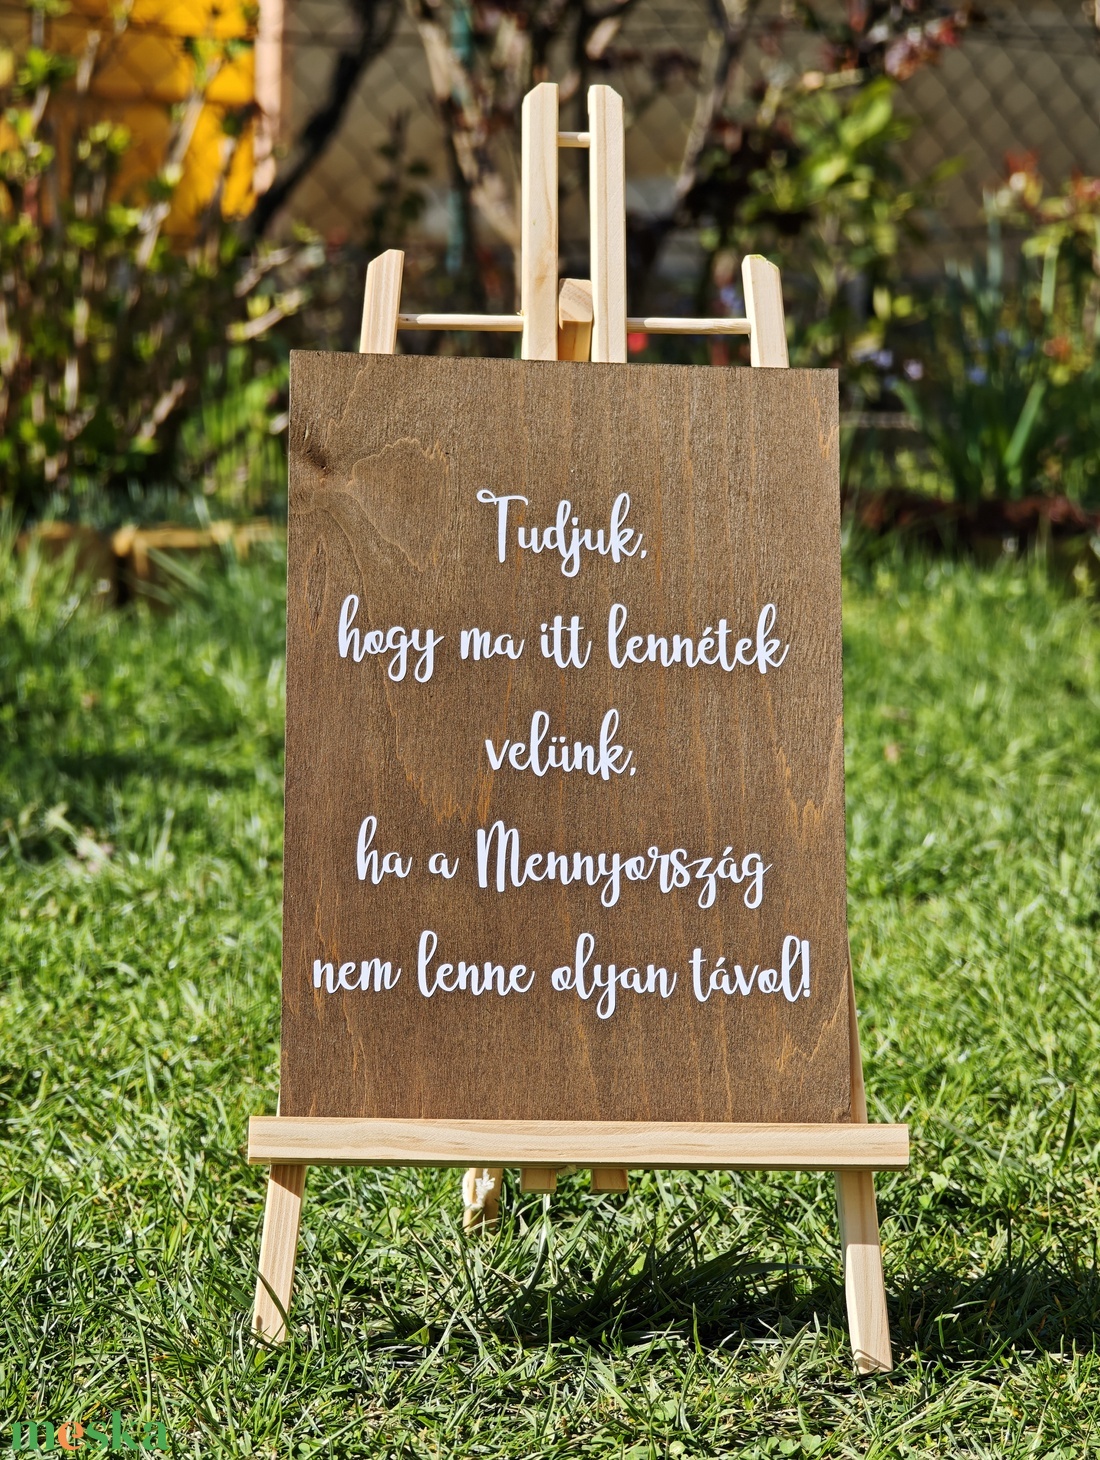 Tudjuk,
hogy ma itt lennétek
velünk,
ha a Mennyország
nem lenne olyan távol!
meska